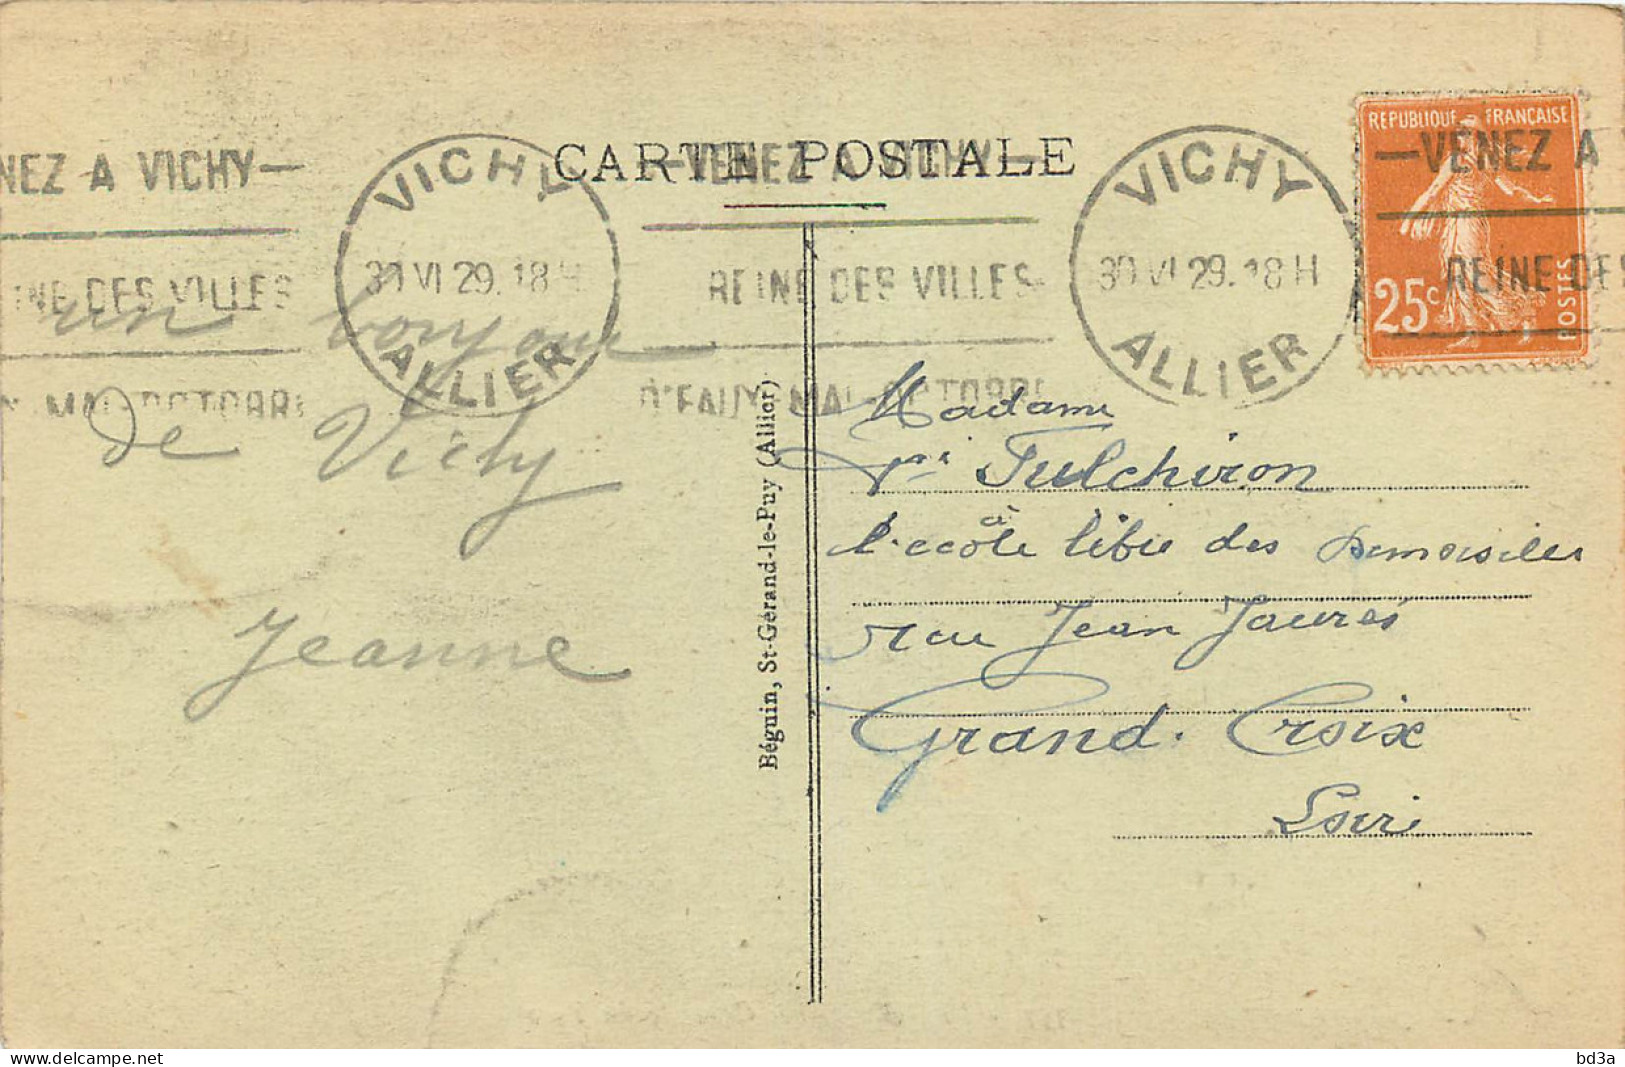 CARTE POSTALE
NEZ A VICHY—
INE DES VILLES
VICHY
30 VI 29. 18 H
ALLIER
—VENEZ A VICHY—
REINE DES VILLES
D'EAUX MAI-OCTOBRE
VICHY
30 VI 29. 18 H
ALLIER
REPUBLIQUE FRANÇAISE
—VENEZ A
REINE DES
25c
POSTES
un bonjour
de Vichy
Jeanne
Béguin, St-Gérand-le-Puy (Allier)
Madame
Fulchiron
à
l'école libre des demoiselles
rue Jean Jaurès
Grand. Croix
Loire
www.delcampe.net
bd3a